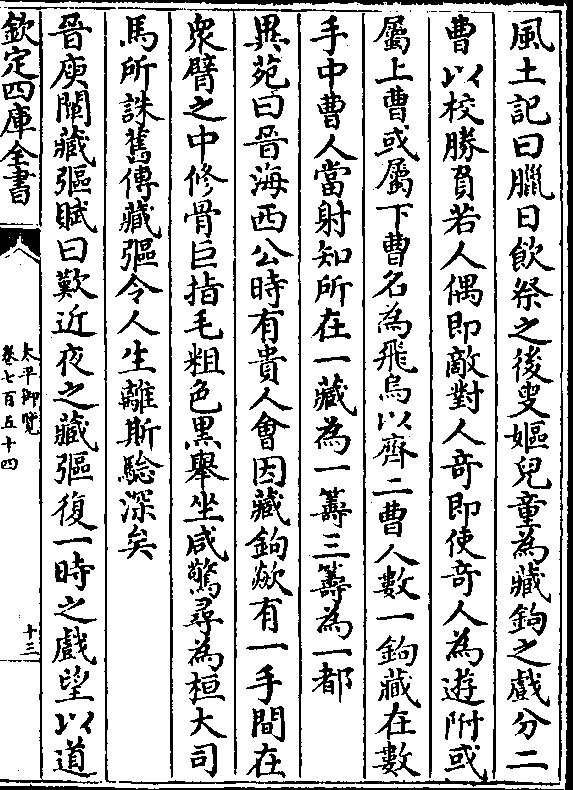 風土記曰臘日飲祭之後叟嫗兒童為藏鉤之戲分二
曹以校勝負若人偶即敵對人奇即使奇人為遊附或
屬上曹或屬下曹名為飛鳥以齊二曹人數一鉤藏在數
手中曹人當射知所在一藏為一籌三籌為一都
異苑曰晉海西公時有貴人會因藏鉤欻有一手間在
衆臂之中修骨巨指毛粗色黑舉坐咸驚尋為桓大司
馬所誅舊傳藏彄令人生離斯驗深矣
晉庾闡藏彄賦曰歎近夜之藏彄復一時之戲望以道
欽定四庫全書
太平御覽
卷七百五十四
十三